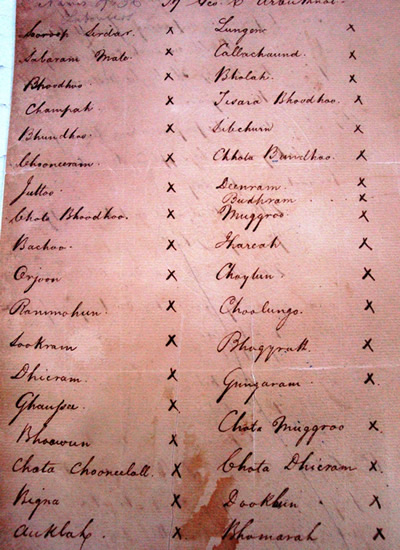 Sooroop Sirdar X Lungon X
Sabaram Mate X Callachaund X
Bhoodhoo X Bholah X
Champah X Tisara Bhoodhoo X
Bhundhoo X Sibchurn X
Chooneeram X Chhota Bundhoo X
Juttoo X Deenram X
Budhram X
Chota Bhoodhoo X Muggroo X
Bachoo X Hareah X
Orjoon X Choytun X
Rammohun X Choolungo X
Sookram X Bhagyrutt X
Dhieram X Gungaram X
Ghaussa X Chota Muggroo X
Bhoowun X
Chota Chooneelall X Chota Dhieram X
Bigna X Dookhun X
Auklah X Bhomarah X